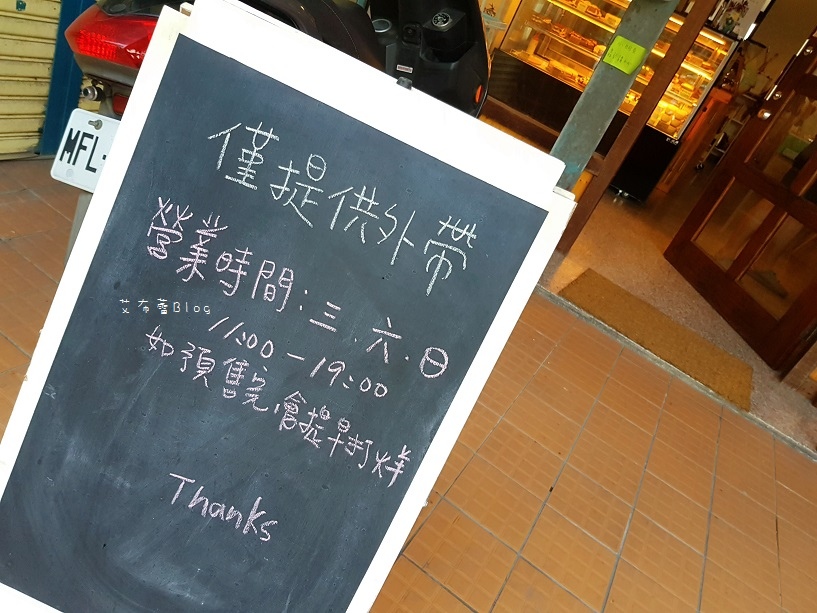 僅提供外帶
營業時間:三.六.日
11:00-19:00
如預售完,會提早打烊
Thanks
艾布蕾Blog
MFL-